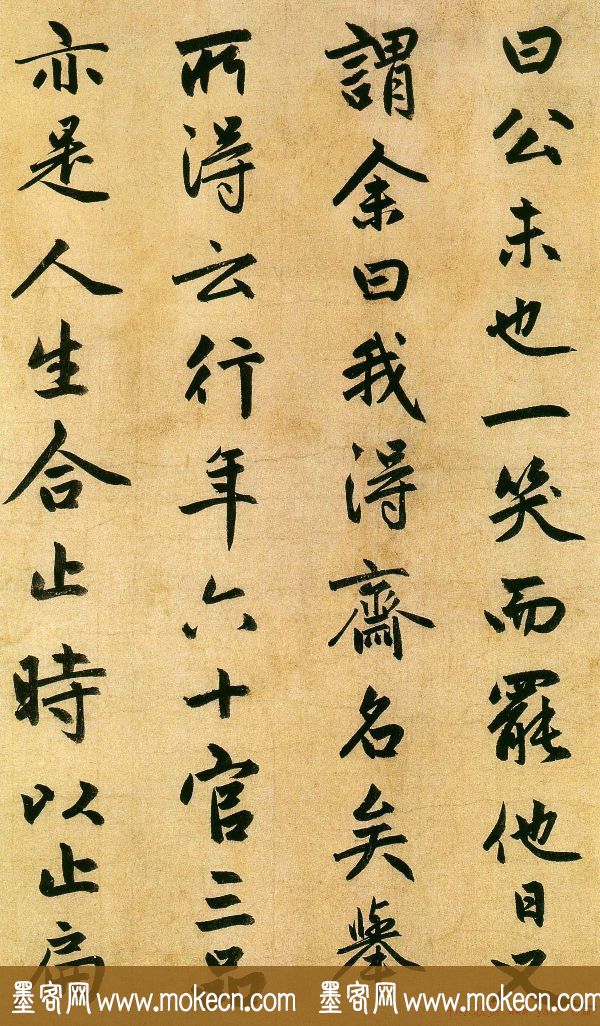 曰公未也一笑而罷他日又
謂余曰我得齋名矣舉
所得云行年六十官三品
亦是人生合止時以止扁
墨客网www.mokecn.com 墨客网www.mokecn.com